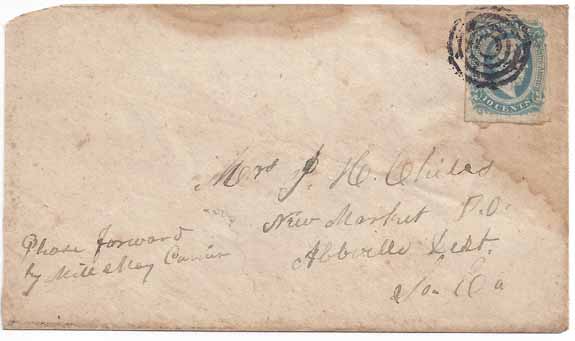 TEN CENTS
Mrs J. H. Childs
New Market P.O.
Abbville Dist.
So Ca
Please forward
by Carrier